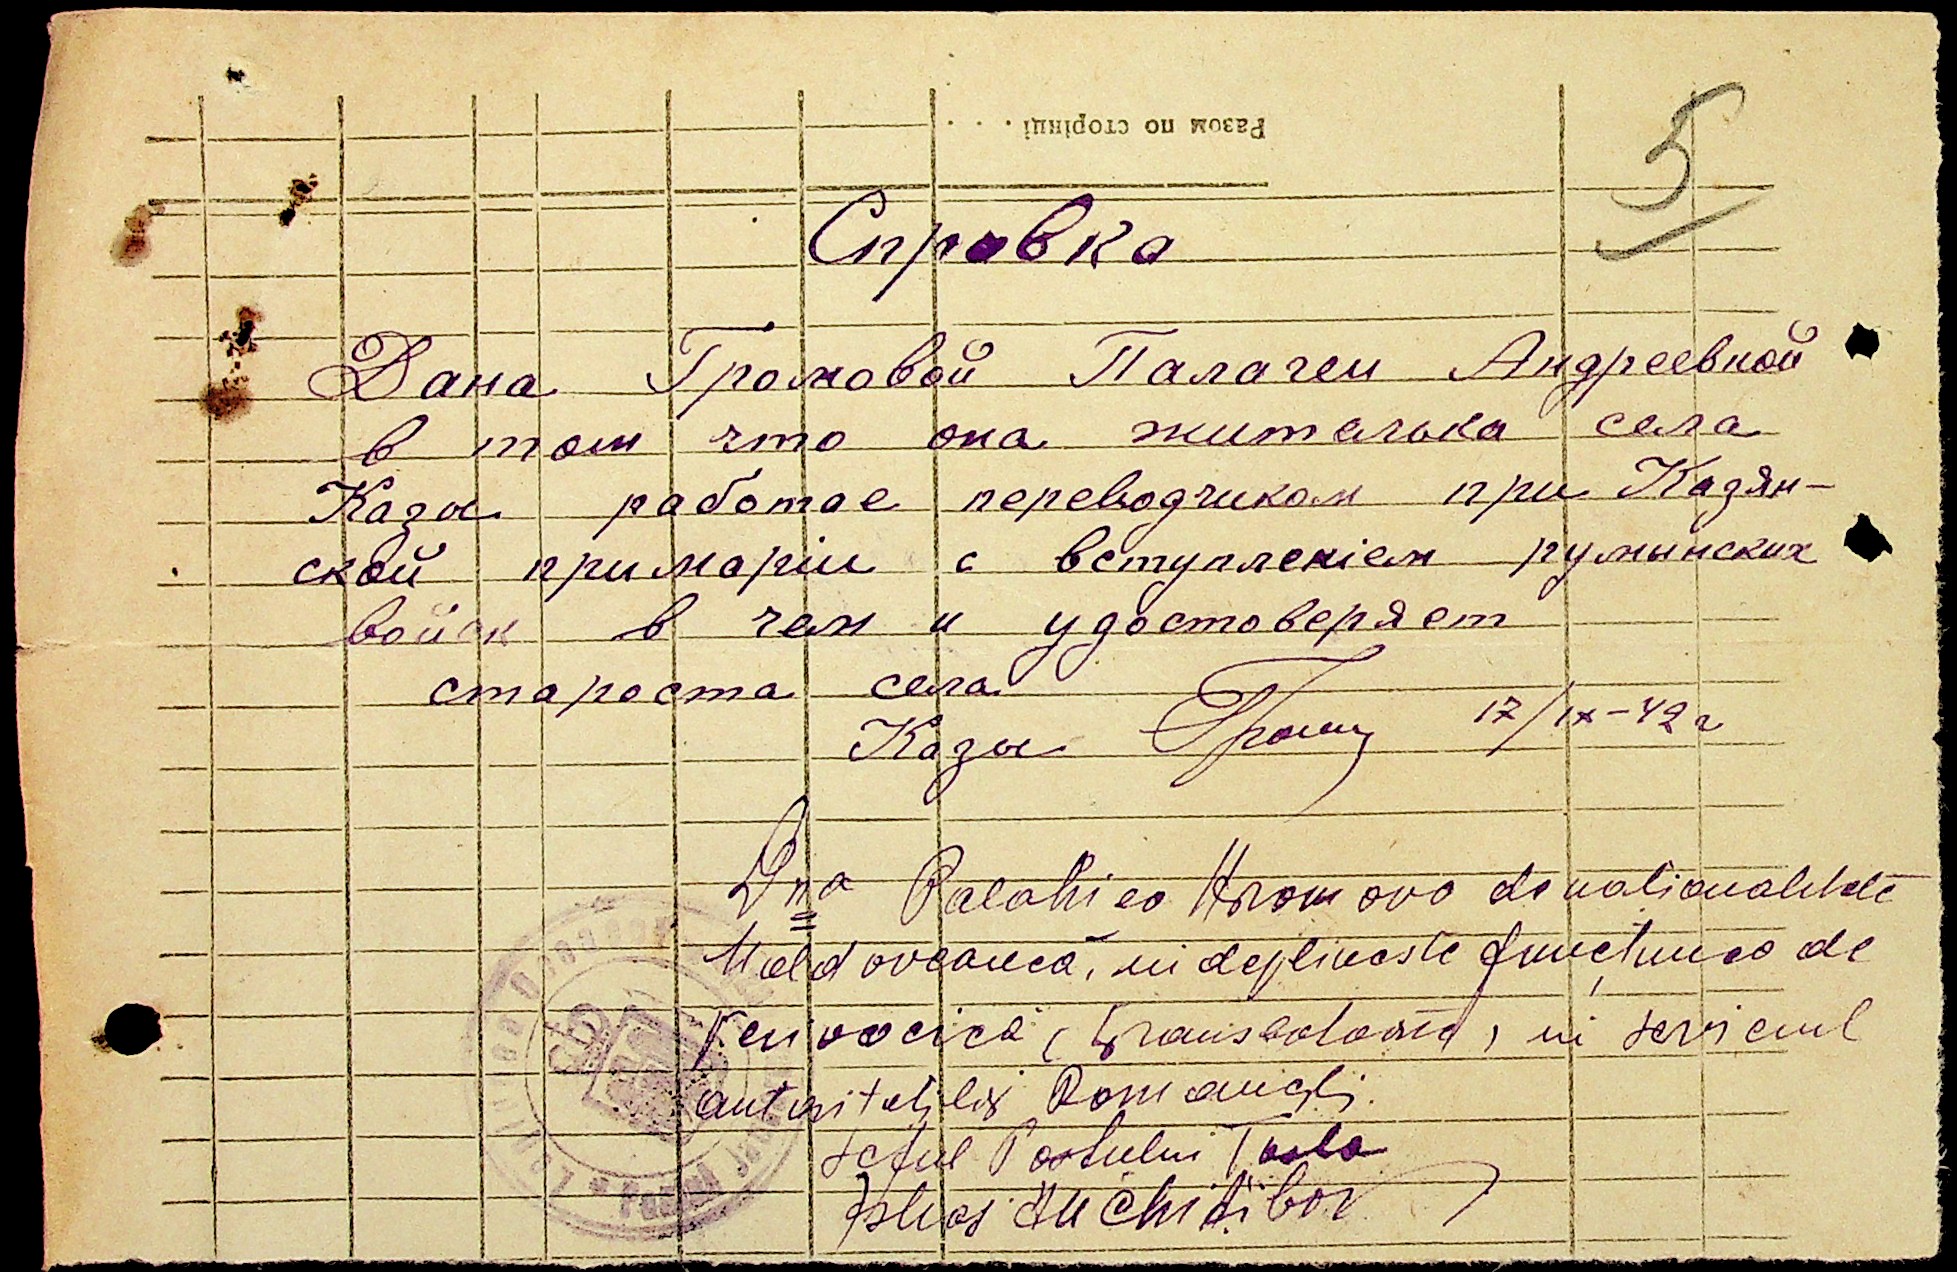 Разом по сторінці . . .
5
Справка
Дана Громовой Палагеи Андреевной
в том что она жителька села
Казы работае переводчиком при Казян-
ской примаріи с вступленіем румынских
войск в чем и удостоверяет
староста села
Казы 17/IX-42 г
Dna Palahiea Hromova de nationalitate
Moldoveancă, indeplineste funcțiunea de
(translatoare) in serviciul
autoritatilor Romanești.
Seful Postului